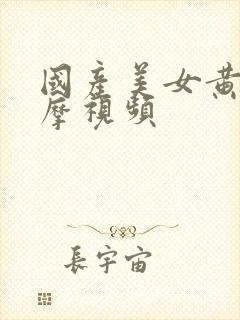 國產美女黃
摩視頻
長宇宙